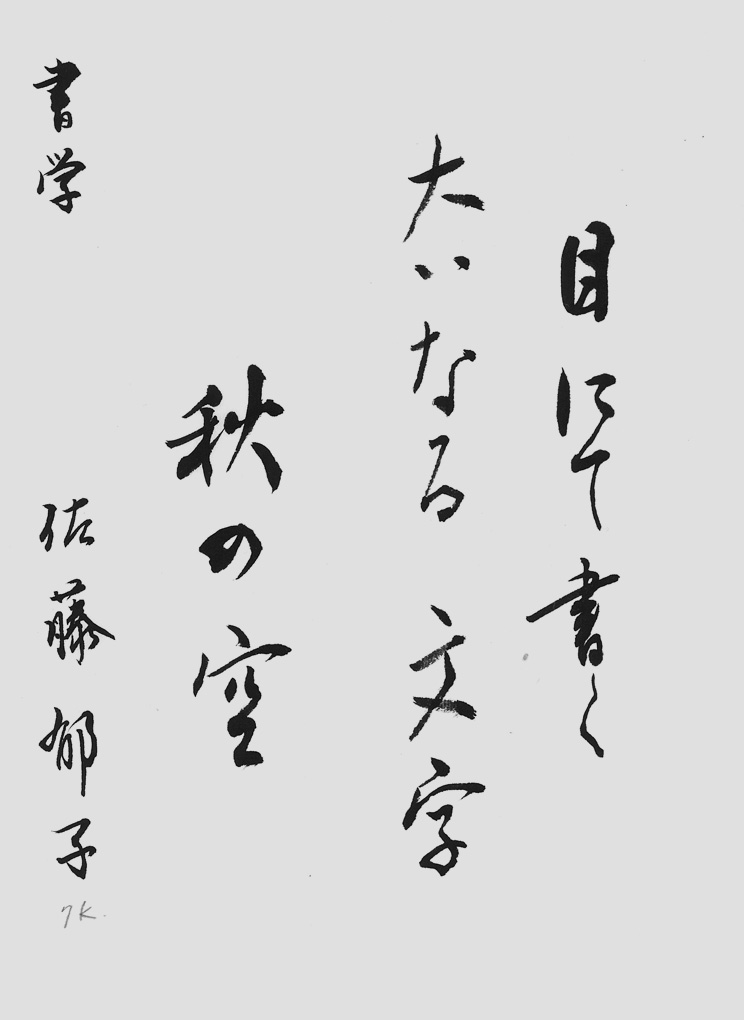 目にて書く
大いなる文字
秋の空
書学 佐藤郁子
7K.